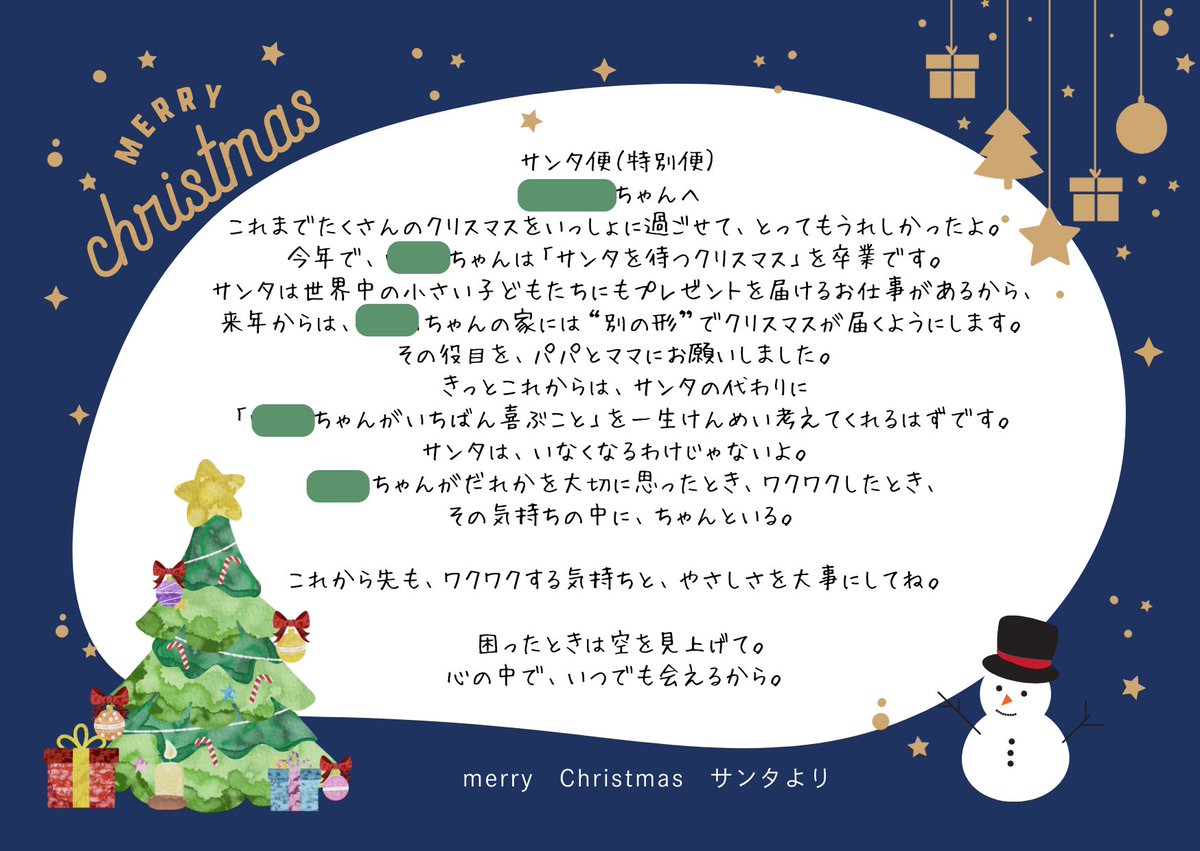 MERRY
christmas
サンタ便(特別便)
ちゃんへ
これまでたくさんのクリスマスをいっしょに過ごせて、とってもうれしかったよ。
今年で、ちゃんは「サンタを待つクリスマス」を卒業です。
サンタは世界中の小さい子どもたちにもプレゼントを届けるお仕事があるから、
来年からは、ちゃんの家には“別の形”でクリスマスが届くようにします。
その役目を、パパとママにお願いしました。
きっとこれからは、サンタの代わりに
「ちゃんがいちばん喜ぶこと」を一生けんめい考えてくれるはずです。
サンタは、いなくなるわけじゃないよ。
ちゃんがだれかを大切に思ったとき、ワクワクしたとき、
その気持ちの中に、ちゃんといる。
これから先も、ワクワクする気持ちと、やさしさを大事にしてね。
困ったときは空を見上げて。
心の中で、いつでも会えるから。
merry Christmas サンタより